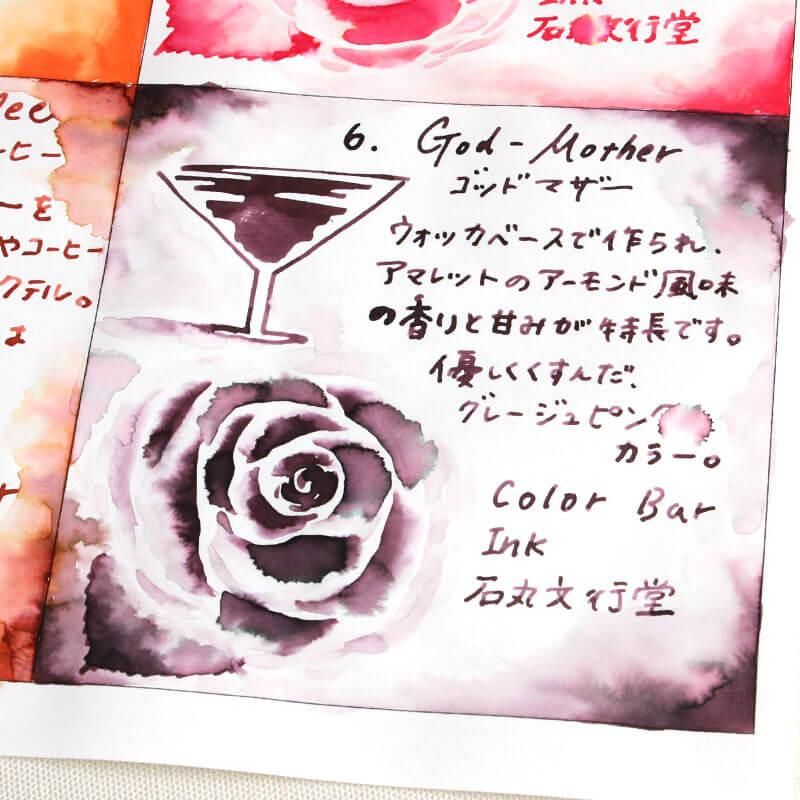 Ink
石丸文行堂
ee
ーヒー
ーを
やコーヒー
クテル。
は
r
6. God-Mother
ゴッドマザー
ウォッカベースで作られ、
アマレットのアーモンド風味
の香りと甘みが特長です。
優しくくすんだ、
グレージュピンク
カラー。
Color Bar
Ink
石丸文行堂